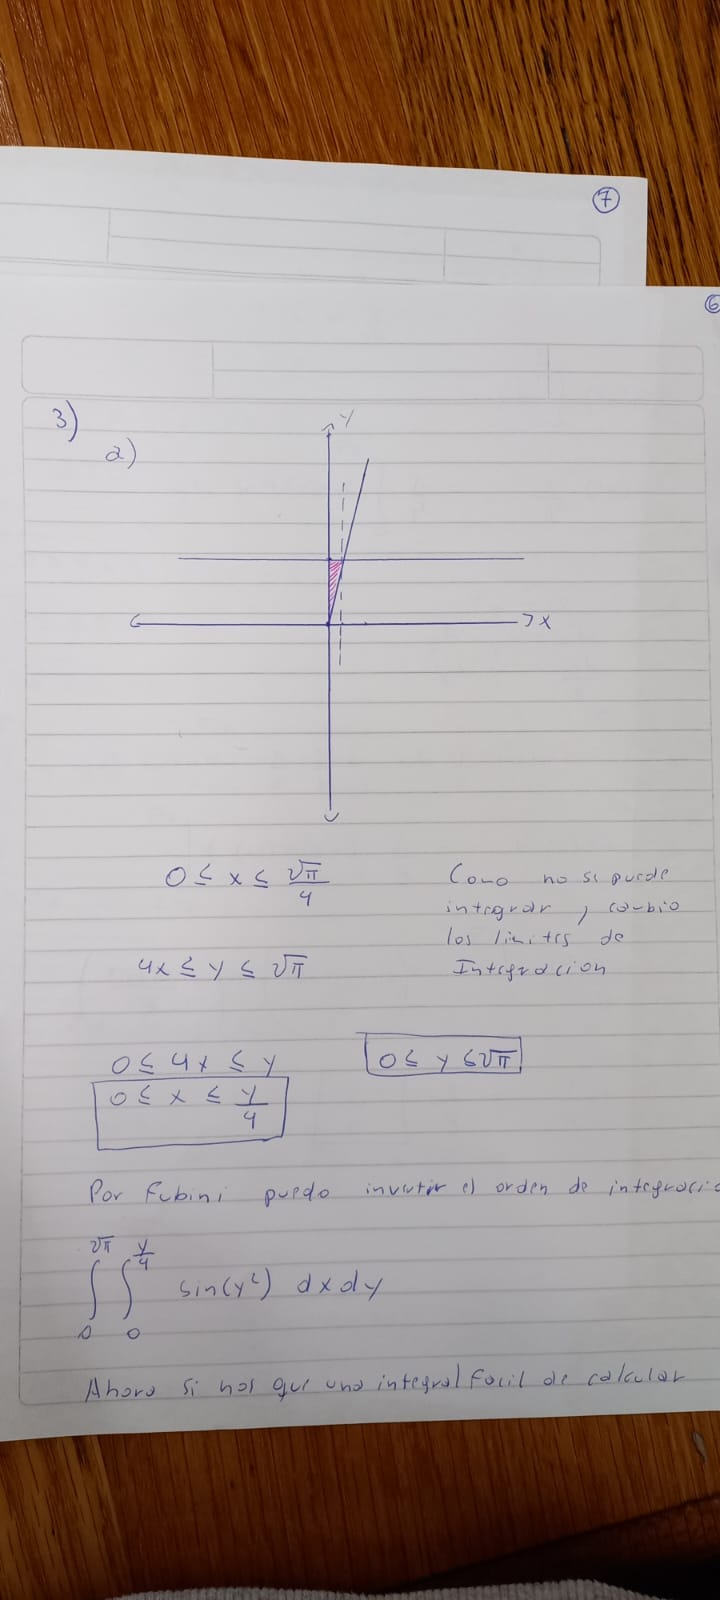 7
6
3)
a)
Y
X
0 ≤ x ≤ √π/4
Como no se puede
integrar, cambio
los limites de
Integracion
4x ≤ y ≤ √π
0 ≤ 4x ≤ y
0 ≤ y ≤ √π
0 ≤ x ≤ y/4
Por Fubini puedo invertir el orden de integracio
∫₀^√π ∫₀^(y/4) sin(y²) dx dy
Ahora si nos que una integral facil de calcular